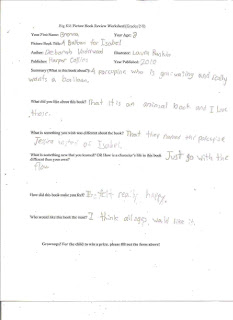 Big Universe Picture Book Review Worksheet (Grades K-3)
Your First Name: Brenna Your Age: 8
Picture Book Title: A Balloon for Isabel
Author: Deborah Underwood Illustrator: Laura Rankin
Publisher: Harper Collins Year Published: 2010
Summary (What is the book about?): A porcupine who is graduating and really
wants a balloon.
What did you like about this book? That it is an animal book and I love
those.
What is something you wish was different about the book? That they named the porcupine
instead of Isabel.
What is something new that you learned? OR How is a character's life in this book
different than your own? Just go with the
flow
How did this book make you feel? I felt really happy.
Who would like this book the most? I think all ages would like it.